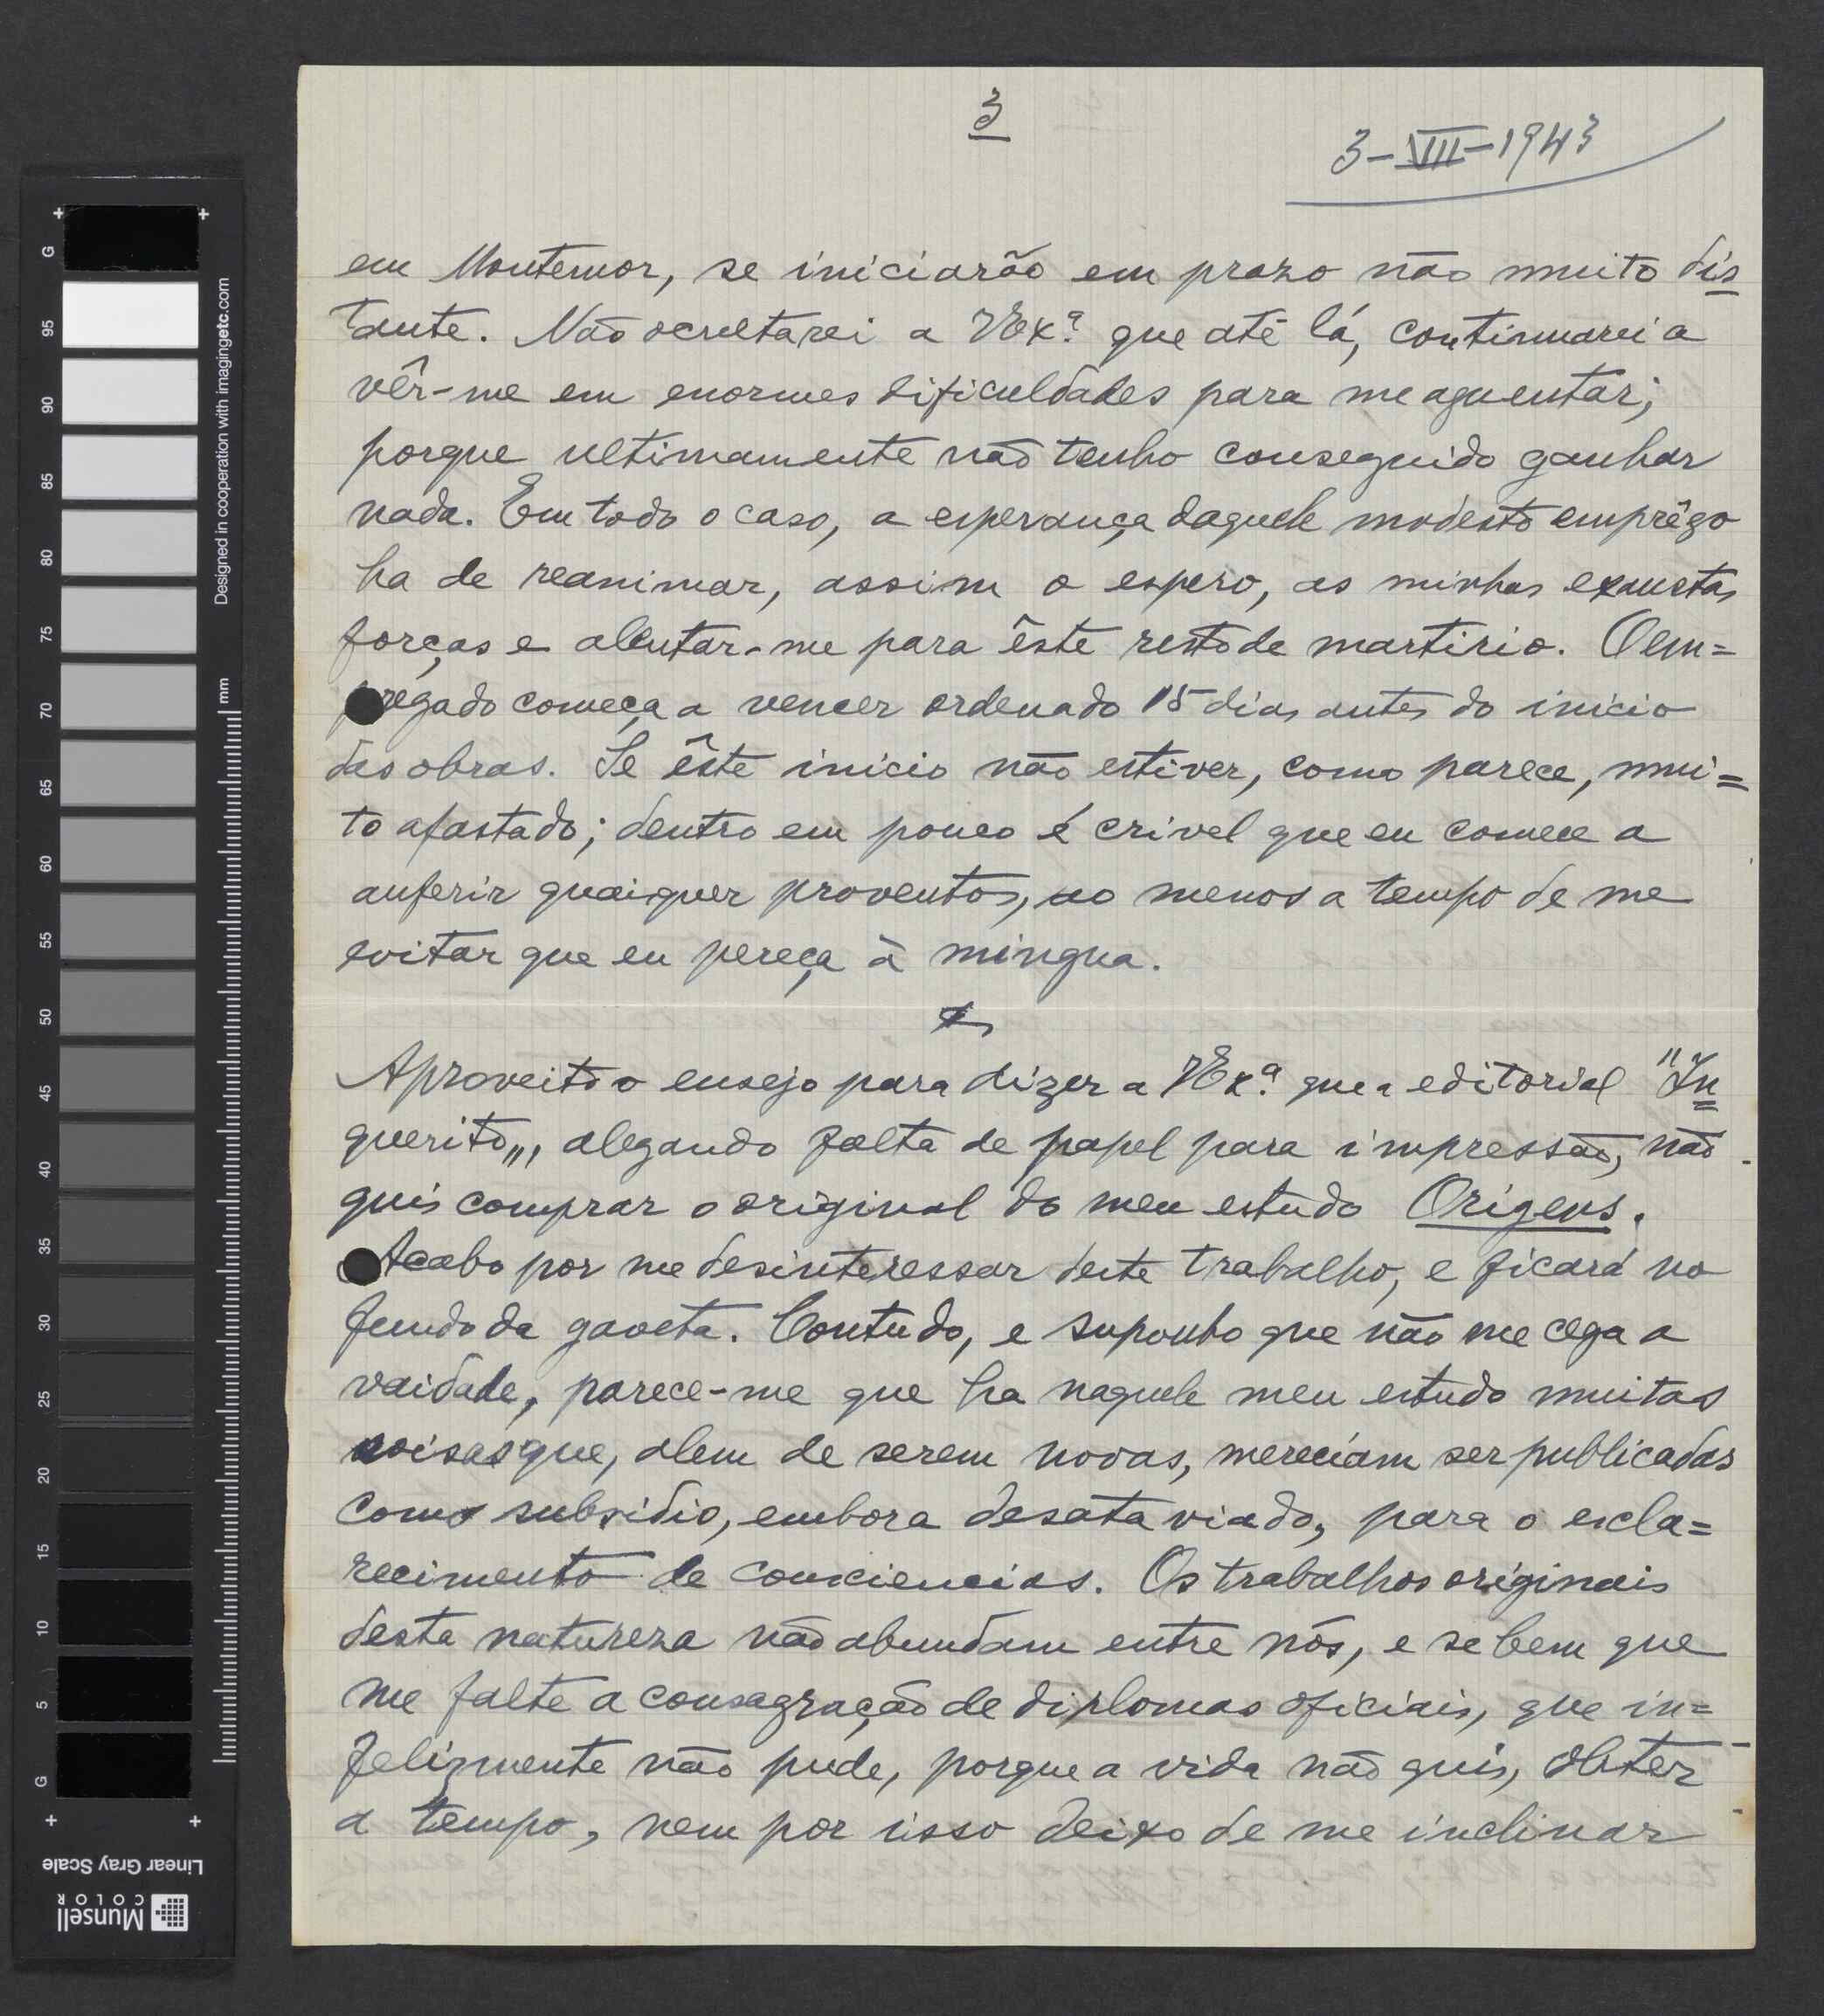 3
3-VII-1943
em Montemor, se iniciarão em prazo não muito dis
tante. Não ocultarei a VExª. que até lá, continuarei a
vêr-me em enormes dificuldades para me aguentar;
porque ultimamente não tenho conseguido ganhar
nada. Em todo o caso, a esperança daquele modesto emprêgo
ha de reanimar, assim o espero, as minhas exaustas
forças e alentar-me para êste resto de martirio. O em=
pregado começa a vencer ordenado 15 dias antes do inicio
das obras. Se êste inicio não estiver, como parece, mui=
to afastado; dentro em pouco é crivel que eu comece a
auferir quaiquer proventos, ao menos a tempo de me
evitar que eu pereça à mingua.
Aproveito o ensejo para dizer a VExª. que a editorial "In
querito", alegando falta de papel para impressão, não
quis comprar o original do meu estudo Origens.
Acabo por me desinteressar deste trabalho, e ficará no
fundo da gaveta. Contudo, e suponho que não me cega a
vaidade, parece-me que ha naquele meu estudo muitas
coisas que, alem de serem novas, mereciam ser publicadas
como subsidio, embora desataviado, para o escla=
recimento de consciencias. Os trabalhos originais
desta natureza não abundam entre nós, e se bem que
me falte a consagração de diplomas oficiais, que in=
felizmente não pude, porque a vida não quis, obter
a tempo, nem por isso deixo de me inclinar
G
95
90
85
80
75
70
65
60
55
50
45
40
35
30
25
20
15
10
5
G
mm
Designed in cooperation with imagingetc.com
Linear Gray Scale
Munsell
COLOR